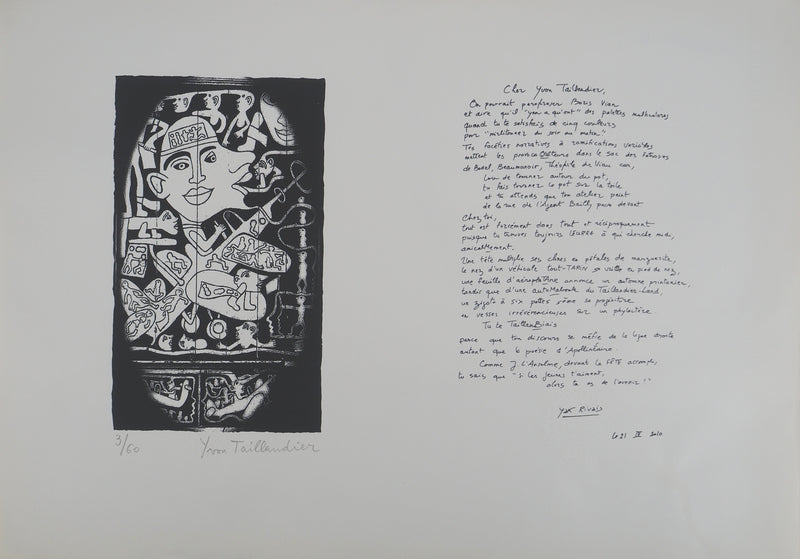 3/60
Yvon Taillandier
Cher Yvon Taillandier,
On pourrait paraphraser Boris Vian
et dire qu'il "yvon a qu'ont" des palettes multicolores
quand tu te satisfais de cinq couleurs
pour "mirlitonner du soir au matin"
Tes facéties narratives à ramifications variables
mettent les provocateurs dans le sac des fatrasies
de Bodel, Beaumanoir, Théophile de Viau car,
loin de tourner autour du pot,
tu fais tourner le pot sur la toile
et tu attends que ton atelier peint
de la rue de l'Agent Bailly passe devant
Chez toi,
tout est forcément dans tout et réciproquement
puisque tu trouves toujours à qui cherche midi,
amicalement.
Une tête multiplie ses chres en pétales de marguerite,
le nez d'un véhicule tout-TARIN se voit en pied de nez,
une feuille d'aéroplane annonce un automne printanier,
tandis que d'une autoMaboule du Taillandier-Land,
un zigoto à six pattes sème sa progéniture
en vesses irrévérencieuses sur un phylactère.
Tu le TaillenBiais
parce que ton discours se méfie de la ligne droite
autant que la poésie d'Apollinaire.
Comme J L'Anselme, devant la FÊTE accomplie,
tu sais que "si les jeunes t'aiment,
alors tu as de l'avenir !"
Yak Rivais
le 21 IV 2010